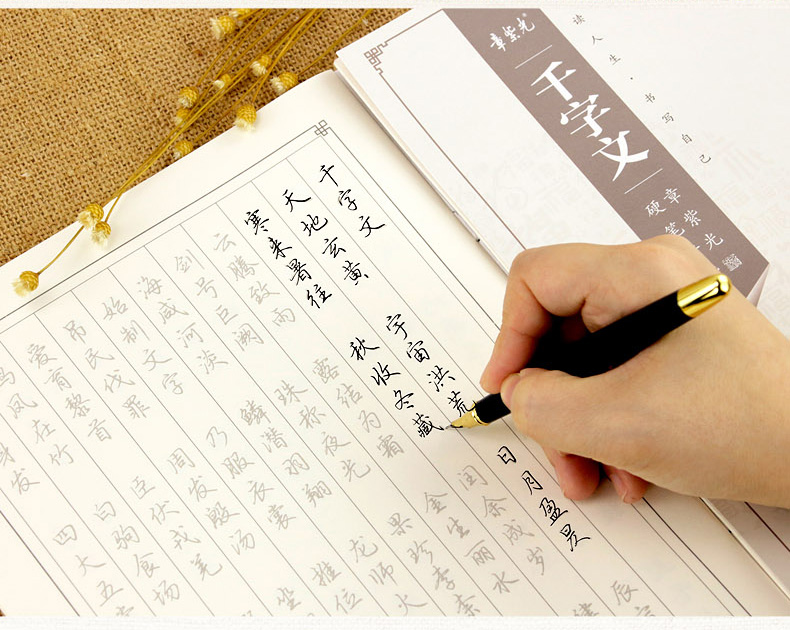 章紫光
千字文
读人生·书写自己
章紫光
硬笔
千字文
天地玄黄 宇宙洪荒 日月盈昃 辰
寒来暑往 秋收冬藏 闰余成岁
云腾致雨 露结为霜 金生丽水
剑号巨阙 珠称夜光 果珍李柰
海咸河淡 鳞潜羽翔 龙师火
始制文字 乃服衣裳 推位
吊民伐罪 周发殷汤 坐
爱育黎首 臣伏戎羌
鸣凤在竹 白驹食场
身发 四大五常